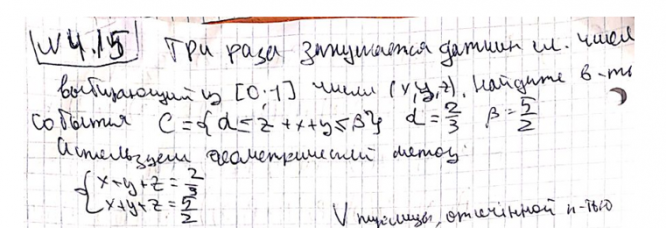 N 4.15 Три раза запускается датчик сл. чисел
выбирающий из [0;1] числа (x,y,z). Найдите в-ть
события C={α≤z+x+y≤β} α=2/3 β=5/2
Используем геометрический метод:
{x+y+z=2/3
x+y+z=5/2
V пирамиды, отсечённой п-тью